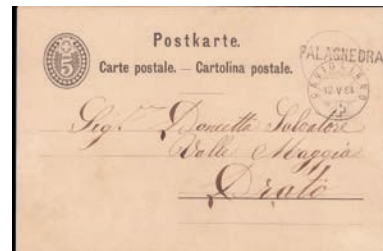 Postkarte.
Carte postale. — Cartolina postale.
5
PALAGNEDRA
CAVIGLIANO
Sig.
Salvatore
Valle Maggia
Prato